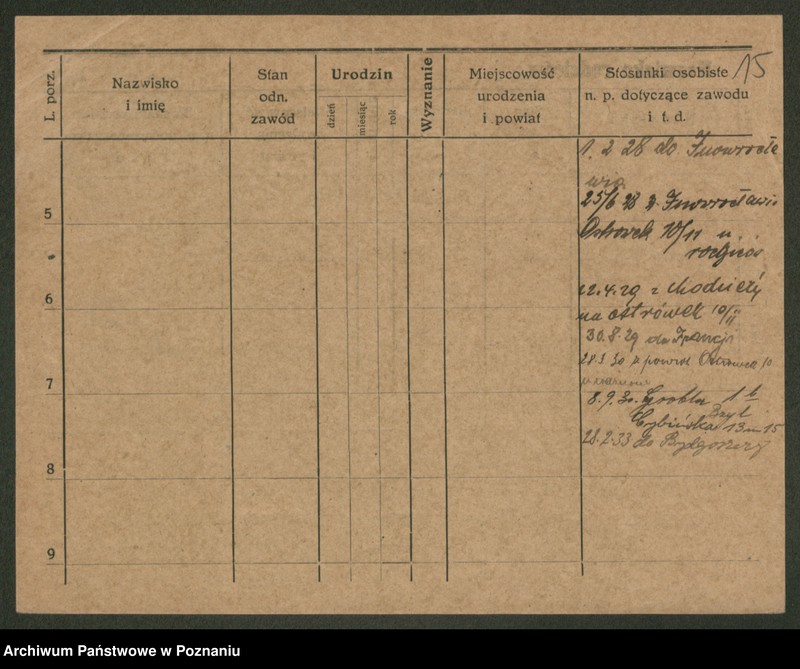 15
L. porz.
Nazwisko
i imię
Stan
odn.
zawód
Urodzin
dzień
miesiąc
rok
Wyznanie
Miejscowość
urodzenia
i powiat
Stosunki osobiste
n. p. dotyczące zawodu
i t. d.
1. 2 28 do Inowrocła
wia
25/6 28 z Inowrocławia
Ostrówek 10/11 u
22.4.29 z Chodzieży
na Ostrówek 10/11
30.8.29 do Francji
28.3 30 z powrot Ostrówek 10
8.9.30. Grobla 1 b
Cybińska 13 m 15
28.2.33 do Bydgoszczy
5
6
7
8
9
Archiwum Państwowe w Poznaniu